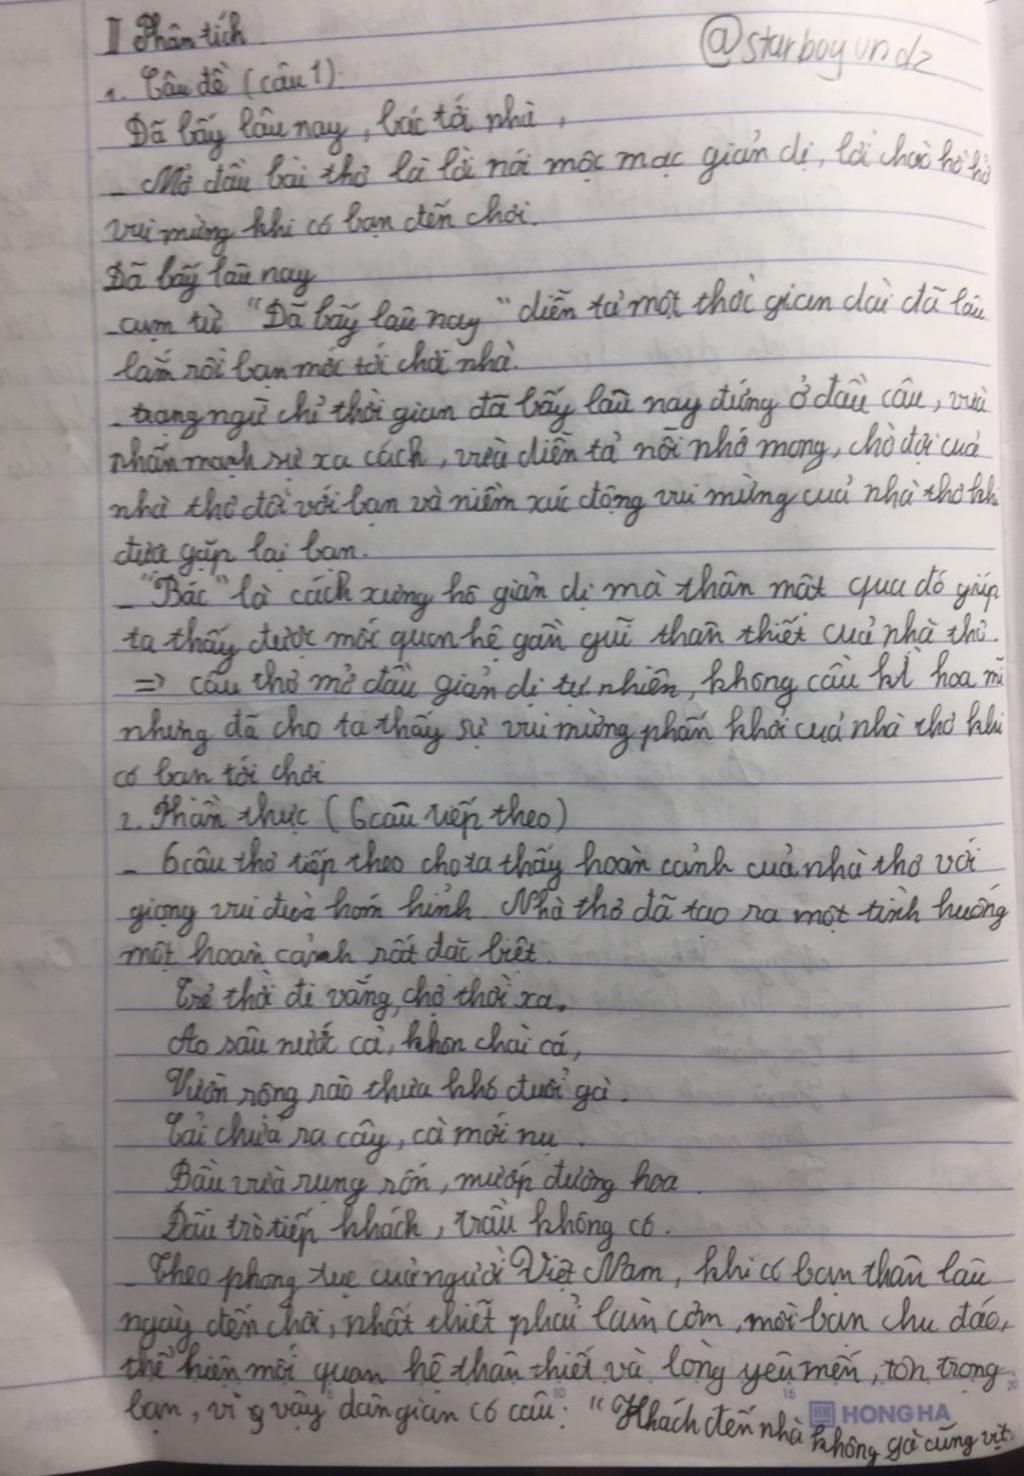 II Phân tích
@starboyvndz
1. Câu đề (câu 1).
Đã bấy lâu nay, bác tới nhà,
_ Mở đầu bài thơ là lời nói mộc mạc giản dị, lời chào hồ hởi
vui mừng khi có bạn đến chơi.
Đã bấy lâu nay
_ cụm từ "Đã bấy lâu nay" diễn tả một thời gian dài đã lâu
lắm rồi bạn mới tới chơi nhà.
_ trạng ngữ chỉ thời gian đã bấy lâu nay đứng ở đầu câu, vừa
nhấn mạnh sự xa cách, vừa diễn tả nỗi nhớ mong, chờ đợi của
nhà thơ đối với bạn và niềm xúc động vui mừng của nhà thơ khi
được gặp lại bạn.
_ "Bác" là cách xưng hô giản dị mà thân mật qua đó giúp
ta thấy được mối quan hệ gần gũi thân thiết của nhà thơ.
=> câu thơ mở đầu giản dị tự nhiên, không cầu kì hoa mĩ
nhưng đã cho ta thấy sự vui mừng phấn khởi của nhà thơ khi
có bạn tới chơi
2. Phần thực (6 câu tiếp theo)
_ 6 câu thơ tiếp theo cho ta thấy hoàn cảnh của nhà thơ với
giọng vui đùa hóm hỉnh. Nhà thơ đã tạo ra một tình huống
một hoàn cảnh rất đặc biệt.
Trẻ thời đi vắng, chợ thời xa.
Ao sâu nước cả, khôn chài cá,
Vườn rộng rào thưa khó đuổi gà.
Cải chửa ra cây, cà mới nụ.
Bầu vừa rụng rốn, mướp đương hoa.
Đầu trò tiếp khách, trầu không có.
_ Theo phong tục của người Việt Nam, khi có bạn thân lâu
ngày đến chơi, nhất thiết phải làm cơm, mời bạn chu đáo,
thể hiện mối quan hệ thân thiết và lòng yêu mến, tôn trọng
bạn, vì vậy dân gian có câu: "Khách đến nhà không gà cũng vịt.
5 10 15 20
HH HONG HA